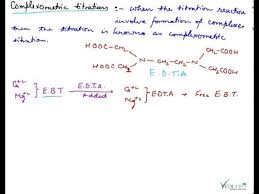 Complexometric titrations :- When the titration reaction
involve formation of complexes
then the titration is known as complexometric
titration.
HOOC-CH₂ CH₂COOH
N-CH₂-CH₂-N
HOOC-CH₂ CH₂COOH
E.D.T.A
Ca⁺² } E.B.T E.D.T.A Ca⁺² } EDTA + Free E.B.T
Mg⁺² Added Mg⁺²